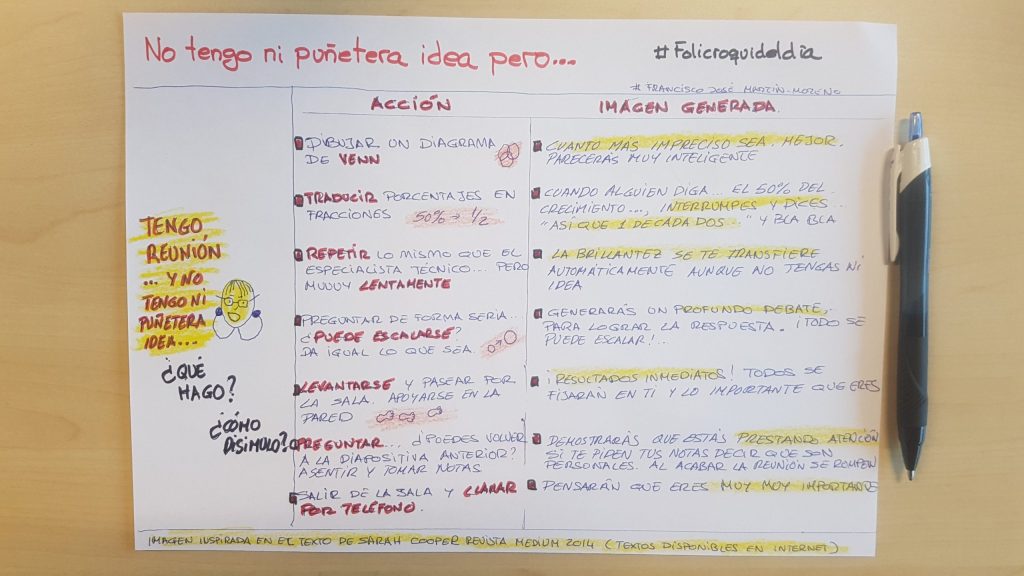 No tengo ni puñetera idea pero...
#Folicroquideldía
# FRANCISCO JOSÉ MARTÍN-MORENO
ACCIÓN
IMÁGEN GENERADA
TENGO
REUNIÓN
... Y NO
TENGO NI
PUÑETERA
IDEA...
¿QUÉ
HAGO?
¿CÓMO
DISIMULO?
DIBUJAR UN DIAGRAMA
DE VENN
CUANTO MÁS IMPRECISO SEA, MEJOR.
PARECERÁS MUY INTELIGENTE
TRADUCIR PORCENTAJES EN
FRACCIONES 50% → 1/2
CUANDO ALGUIEN DIGA... EL 50% DEL
CRECIMIENTO..., INTERRUMPES Y DICES..
"ASÍ QUE 1 DE CADA DOS.." Y BLA BLA
REPETIR LO MISMO QUE EL
ESPECIALISTA TÉCNICO... PERO
MUUUY LENTAMENTE
LA BRILLANTEZ SE TE TRANSFIERE
AUTOMÁTICAMENTE AUNQUE NO TENGAS NI
IDEA
PREGUNTAR DE FORMA SERIA...
¿PUEDE ESCALARSE?
DA IGUAL LO QUE SEA.
GENERARÁS UN PROFUNDO DEBATE,
PARA LOGRAR LA RESPUESTA. ¡TODO SE
PUEDE ESCALAR!..
LEVANTARSE Y PASEAR POR
LA SALA. APOYARSE EN LA
PARED
¡RESULTADOS INMEDIATOS! TODOS SE
FIJARÁN EN TI Y LO IMPORTANTE QUE ERES
PREGUNTAR... ¿PUEDES VOLVER
A LA DIAPOSITIVA ANTERIOR?
ASENTIR Y TOMAR NOTAS
DEMOSTRARÁS QUE ESTÁS PRESTANDO ATENCIÓN
SI TE PIDEN TUS NOTAS DECIR QUE SON
PERSONALES. AL ACABAR LA REUNIÓN SE ROMPEN
SALIR DE LA SALA Y LLAMAR
POR TELÉFONO.
PENSARÁN QUE ERES MUY MUY IMPORTANTE
IMAGEN INSPIRADA EN EL TEXTO DE SARAH COOPER REVISTA MEDIUM 2014 (TEXTOS DISPONIBLES EN INTERNET)